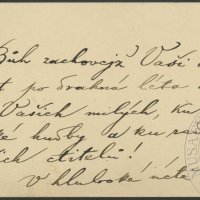 Bůh zachovejž Vaši
t po drahná léta
Vašich milých, ku
ké hudby a ku
ich ctitelů!
V hluboké úctě
MUSA